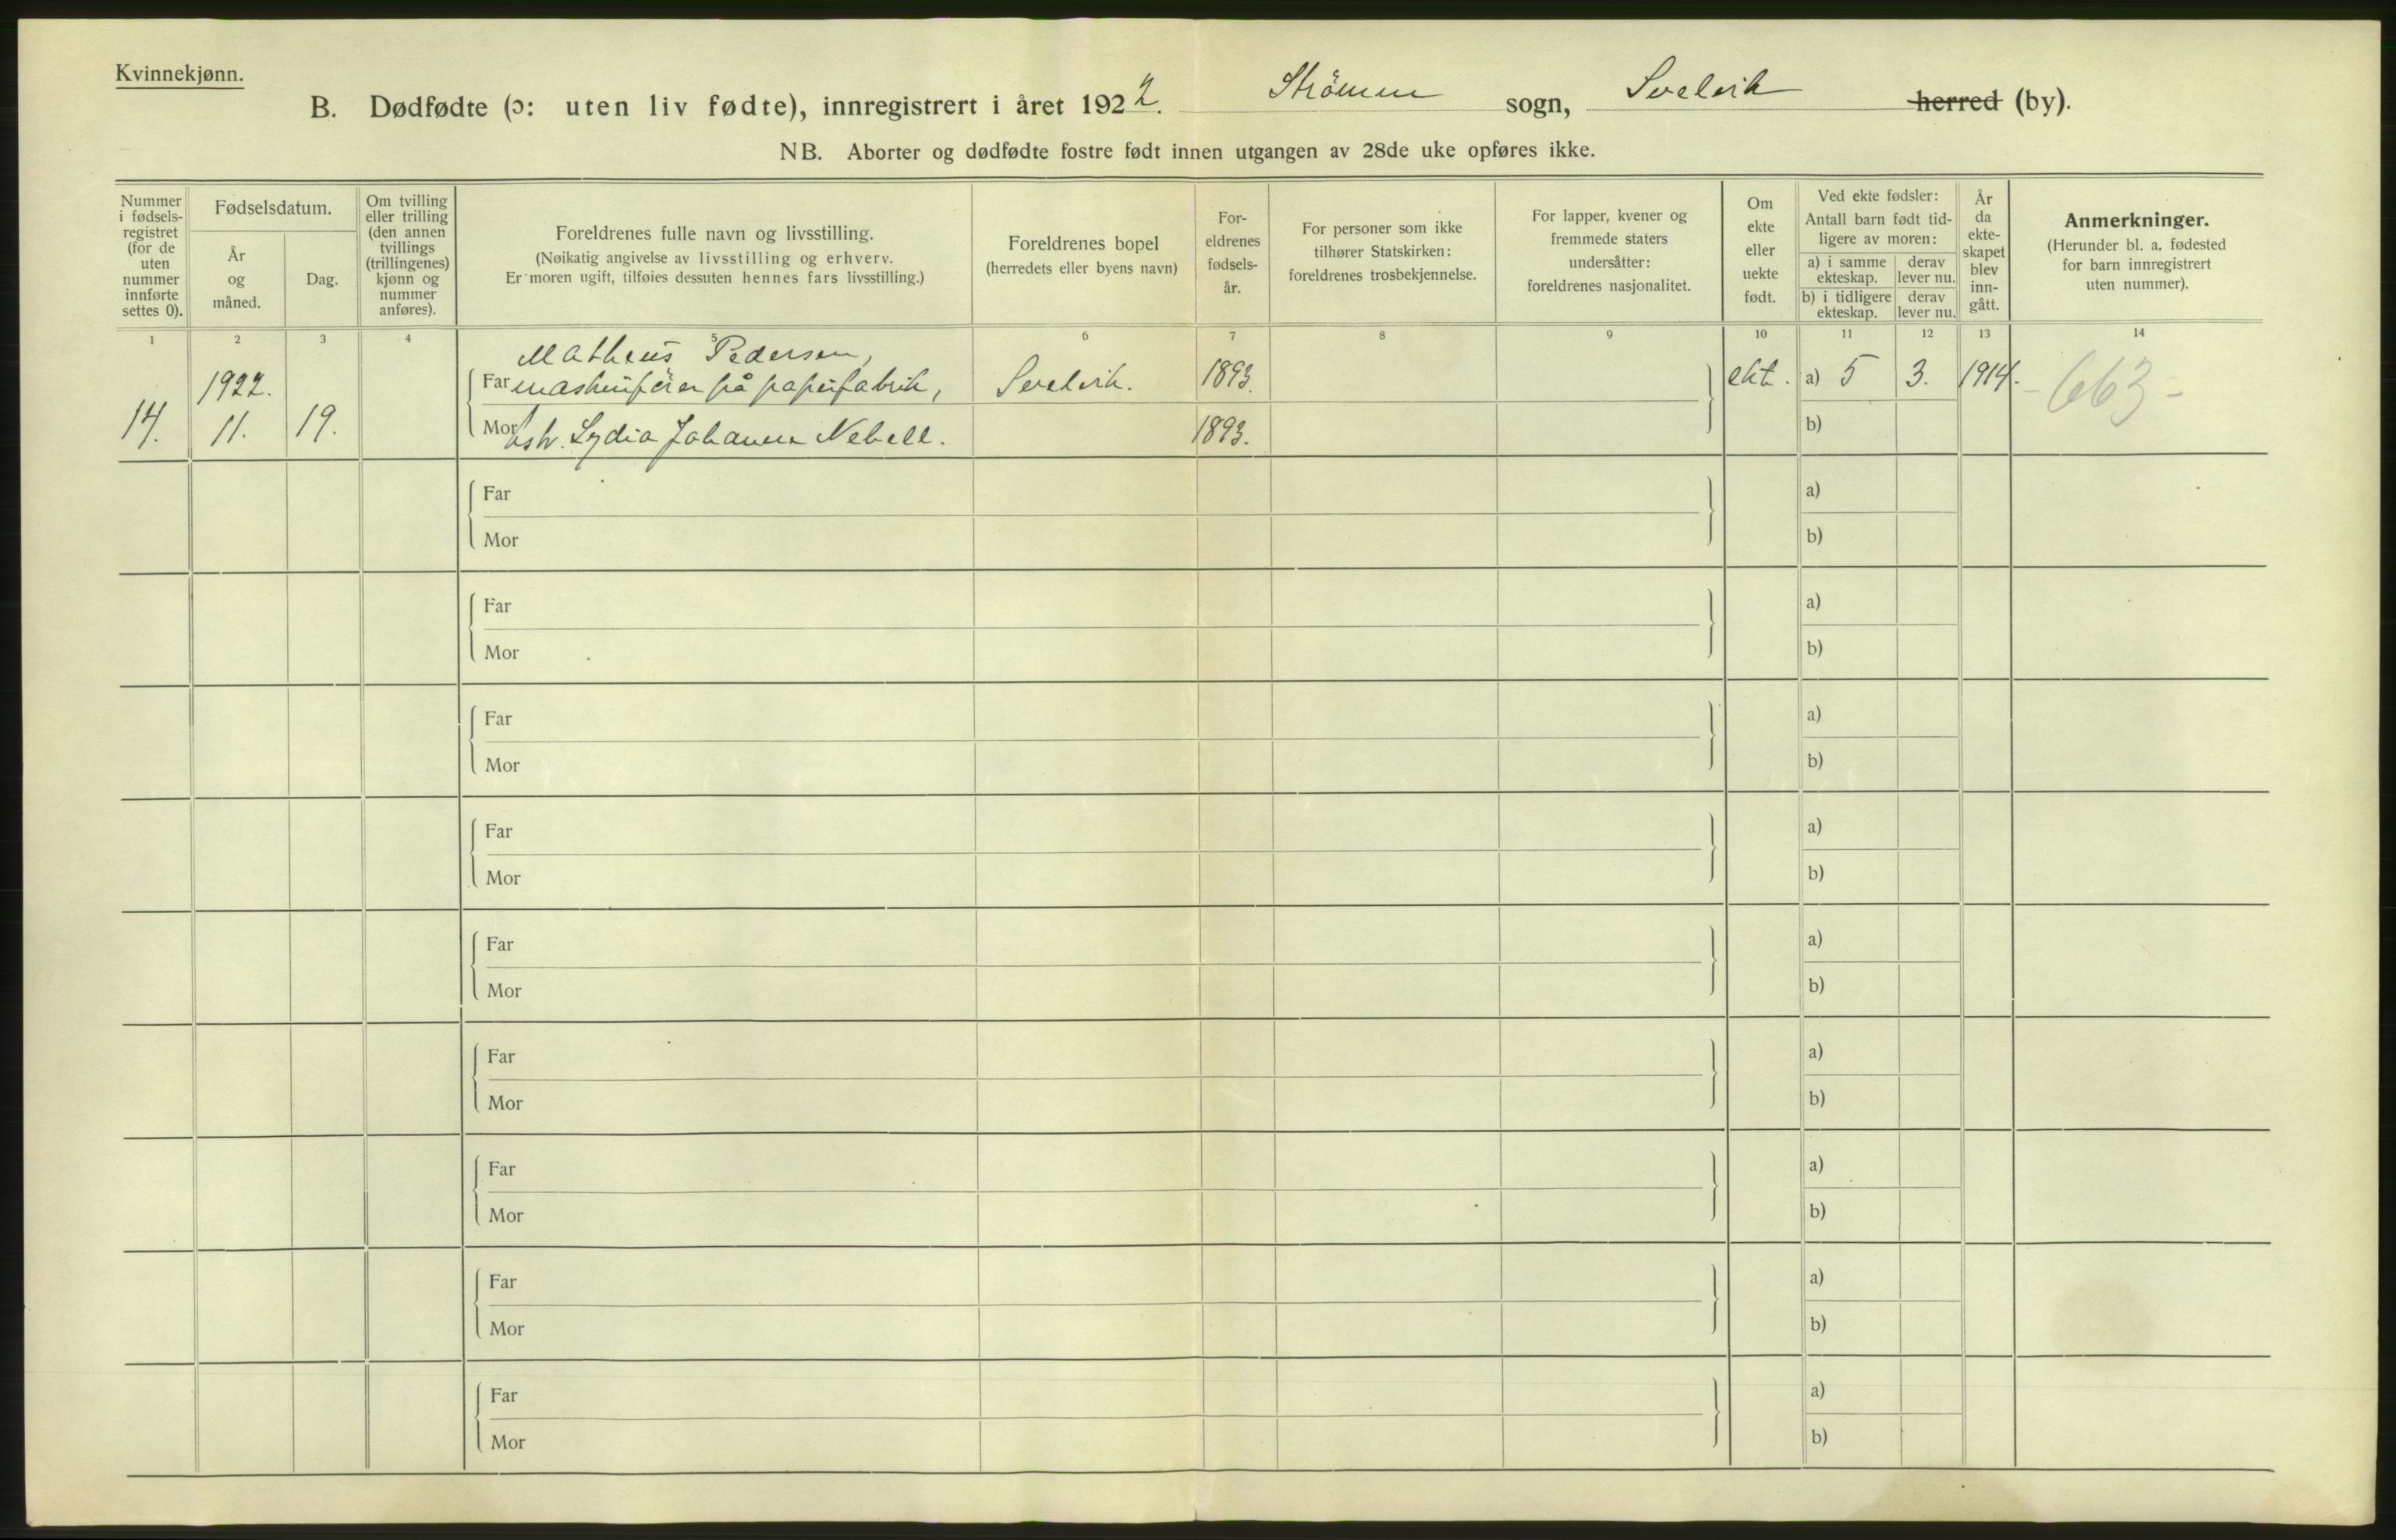 Kvinnekjønn.
B. Dødfødte (ɔ: uten liv fødte), innregistrert i året 1922. Strömm sogn, Svelvik herred (by).
NB. Aborter og dødfødte fostre født innen utgangen av 28de uke opføres ikke.
Nummer i fødsels- registret (for de uten nummer innførte settes 0).
Fødselsdatum.
År og måned.
Dag.
Om tvilling eller trilling (den annen tvillings (trillingenes) kjønn og nummer anføres).
Foreldrenes fulle navn og livsstilling.
(Nøikatig angivelse av livsstilling og erhverv.
Er moren ugift, tilføies dessuten hennes fars livsstilling.)
Foreldrenes bopel
(herredets eller byens navn)
For- eldrenes fødsels- år.
For personer som ikke tilhører Statskirken: foreldrenes trosbekjennelse.
For lapper, kvener og fremmede staters undersåtter: foreldrenes nasjonalitet.
Om ekte eller uekte født.
Ved ekte fødsler:
Antall barn født tid- ligere av moren:
a) i samme ekteskap.
derav lever nu.
b) i tidligere ekteskap.
derav lever nu.
År da ekte- skapet blev inn- gått.
Anmerkninger.
(Herunder bl. a. fødested for barn innregistrert uten nummer).
1 2 3 4 5 6 7 8 9 10 11 12 13 14
Matheus Pedersen,
1922. Far maskinförer på papirfabrik, Svelvik. 1893. ekt. a) 5 3. 1914. -663-
14. 11. 19. Mor hstr. Lydia Johanne Nebell. 1893. b)
Far a)
Mor b)
Far a)
Mor b)
Far a)
Mor b)
Far a)
Mor b)
Far a)
Mor b)
Far a)
Mor b)
Far a)
Mor b)
Far a)
Mor b)
Far a)
Mor b)